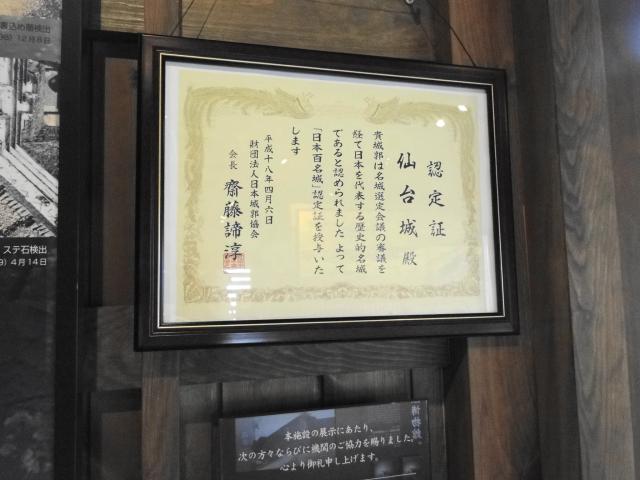 認定証
仙台城殿
貴城郭は名城選定会議の審議を
経て日本を代表する歴史的名城
であると認められました よって
「日本百名城」認定証を授与いた
します
平成十八年四月六日
財団法人日本城郭協会
会長 齋藤諦淳
12月8日
ステ石検出
4月14日
本施設の展示にあたり、
次の方々ならびに機関のご協力を賜りました。
心より御礼申し上げます。